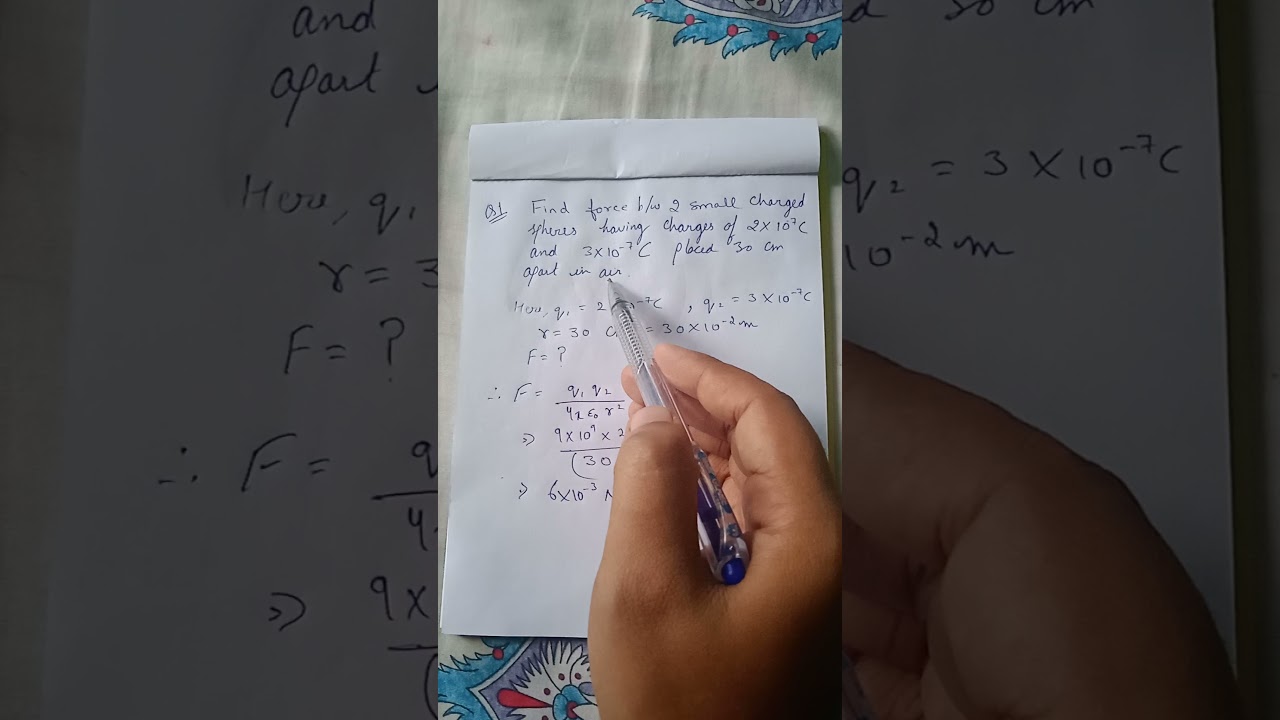 Q1 Find force b/w 2 small charged
spheres having charges of 2×10⁷C
and 3×10⁻⁷C placed 30 cm
apart in air.
Here, q₁ = 2 10⁻⁷C , q₂ = 3×10⁻⁷C
r = 30 = 30×10⁻²m
F = ?
∴ F = q₁ q₂
4π ε₀ r²
⇒ 9×10⁹ × 2
(30
⇒ 6×10⁻³ N